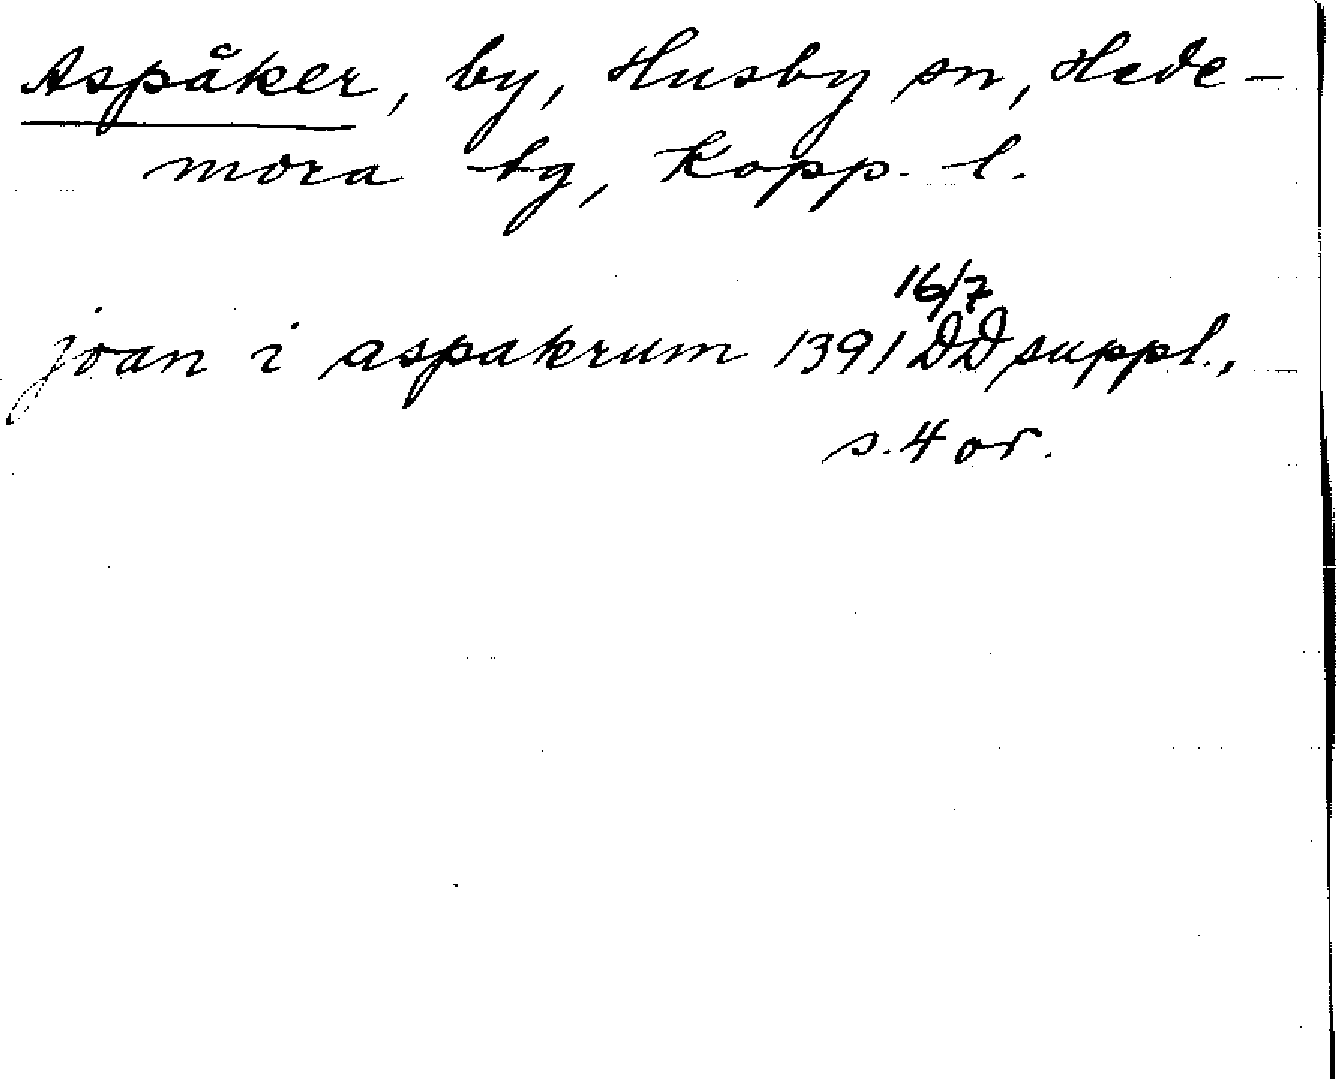 Aspåker, by, Husby sn, Hede-
mora tg, Kopp. l.
joan i aspakrum 1391 16/7 DD suppl.,
s. 4 or.